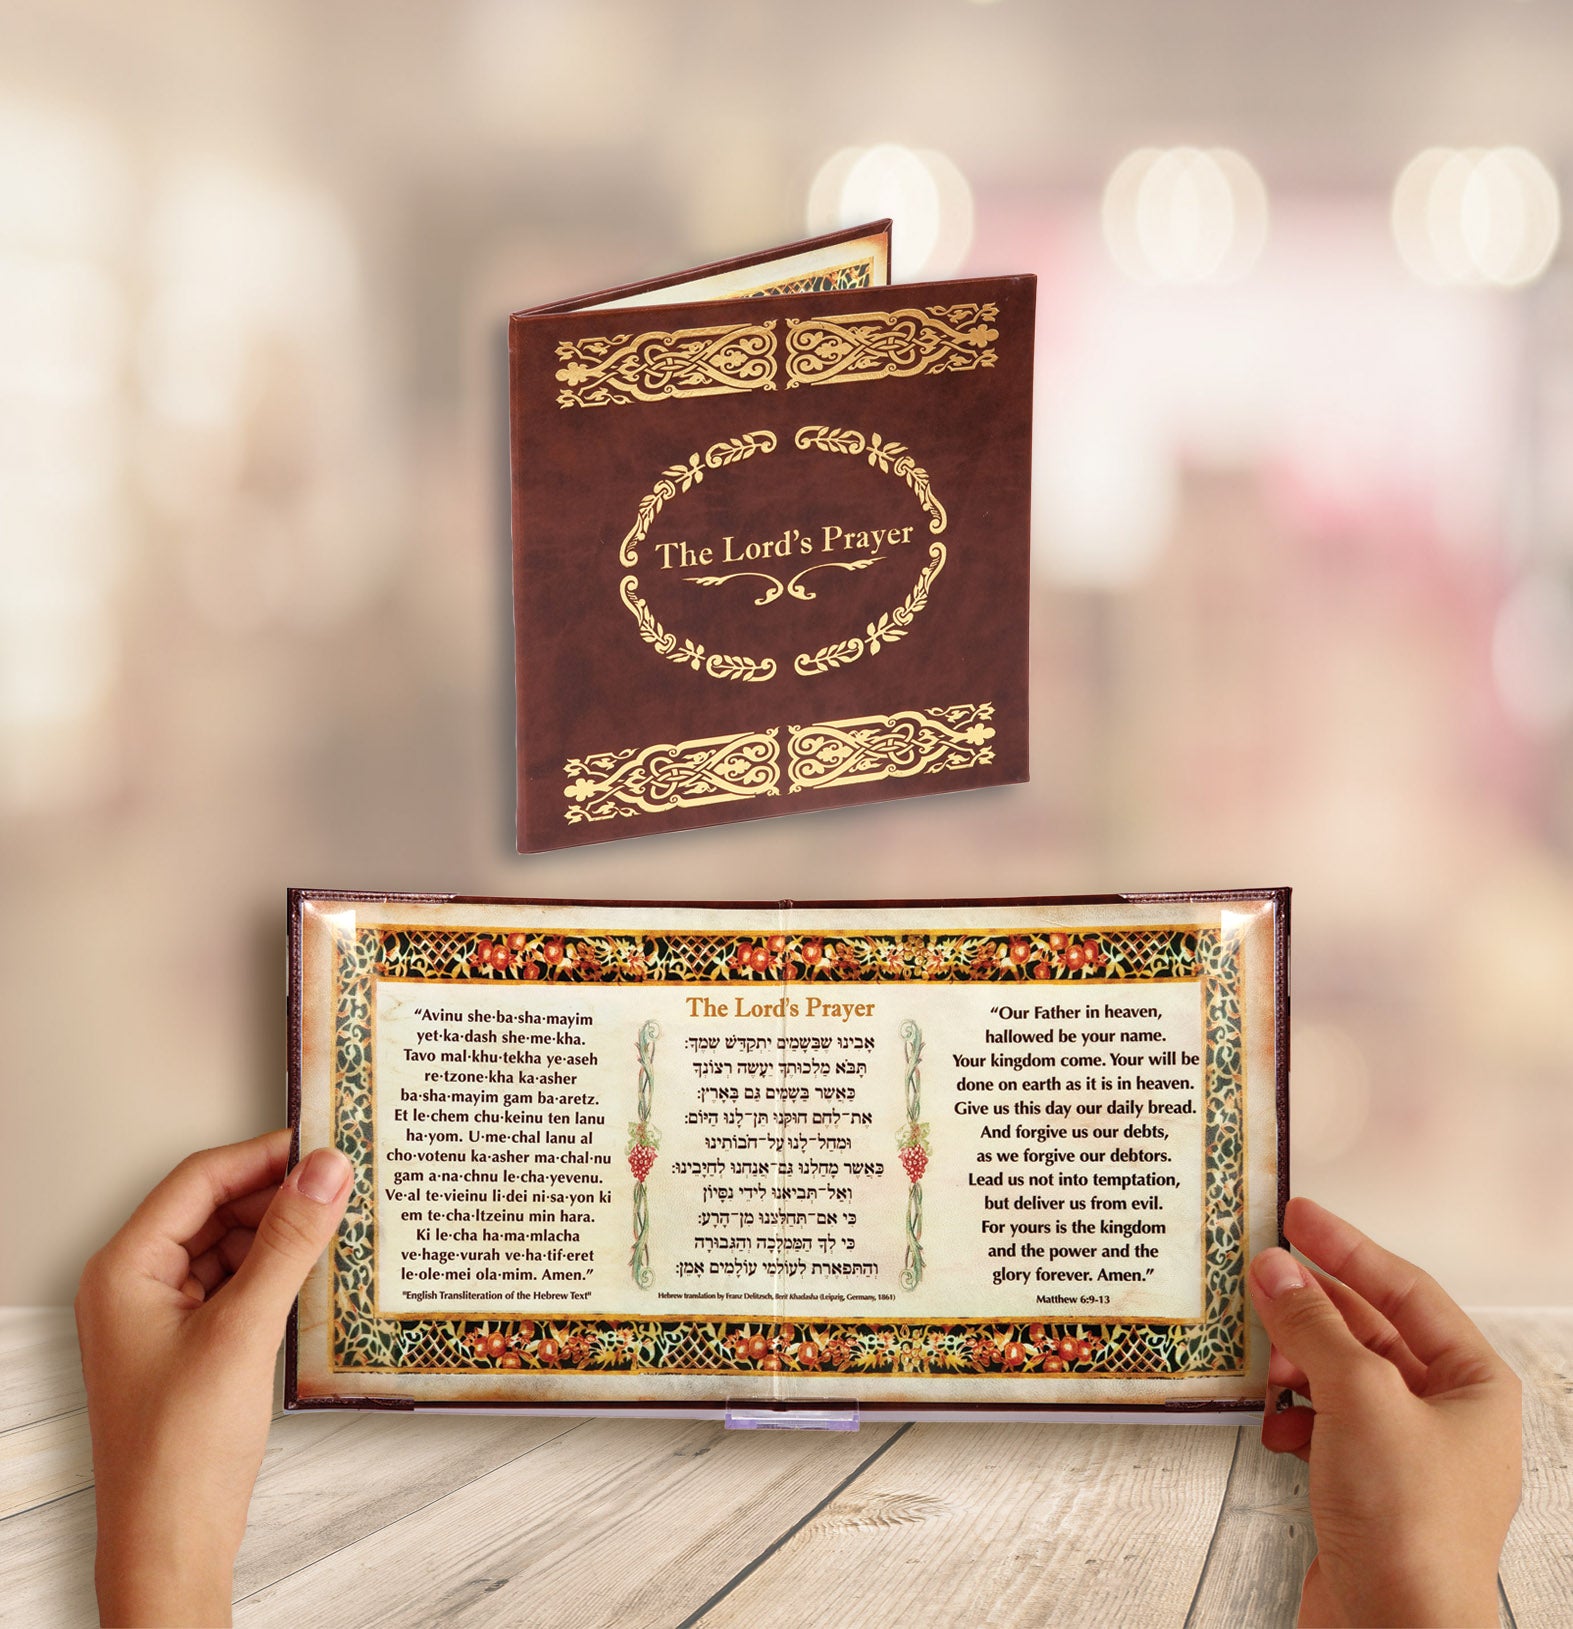 The Lord's Prayer
"Avinu she·ba·sha·mayim
yet·ka·dash she·me·kha.
Tavo mal·khu·tekha ye·aseh
re·tzone·kha ka·asher
ba·sha·mayim gam ba·aretz.
Et le·chem chu·keinu ten lanu
ha·yom. U·me·chal lanu al
cho·votenu ka·asher ma·chal·nu
gam a·na·chnu le·cha·yevenu.
Ve·al te·vieinu li·dei ni·sa·yon ki
em te·cha·ltzeinu min hara.
Ki le·cha ha·ma·mlacha
ve·hage·vurah ve·ha·tif·eret
le·ole·mei ola·mim. Amen."
"English Transliteration of the Hebrew Text"
The Lord's Prayer
אָבִינוּ שֶׁבַּשָּׁמַיִם יִתְקַדֵּשׁ שְׁמֶךָ:
תָּבֹא מַלְכוּתֶךָ יֵעָשֶׂה רְצוֹנְךָ
כַּאֲשֶׁר בַּשָּׁמַיִם גַּם בָּאָרֶץ:
אֶת־לֶחֶם חוּקֵּנוּ תֵּן־לָנוּ הַיּוֹם:
וּמְחַל־לָנוּ עַל־חֹבוֹתֵינוּ
כַּאֲשֶׁר מָחַלְנוּ גַּם־אֲנַחְנוּ לְחַיָּבֵינוּ:
וְאַל־תְּבִיאֵנוּ לִידֵי נִסָּיוֹן
כִּי אִם־תְּחַלְּצֵנוּ מִן־הָרָע:
כִּי לְךָ הַמַּמְלָכָה וְהַגְּבוּרָה
וְהַתִּפְאֶרֶת לְעוֹלְמֵי עוֹלָמִים אָמֵן:
Hebrew translation by Franz Delitzsch, Berit Khadasha (Leipzig, Germany, 1861)
"Our Father in heaven,
hallowed be your name.
Your kingdom come. Your will be
done on earth as it is in heaven.
Give us this day our daily bread.
And forgive us our debts,
as we forgive our debtors.
Lead us not into temptation,
but deliver us from evil.
For yours is the kingdom
and the power and the
glory forever. Amen."
Matthew 6:9-13